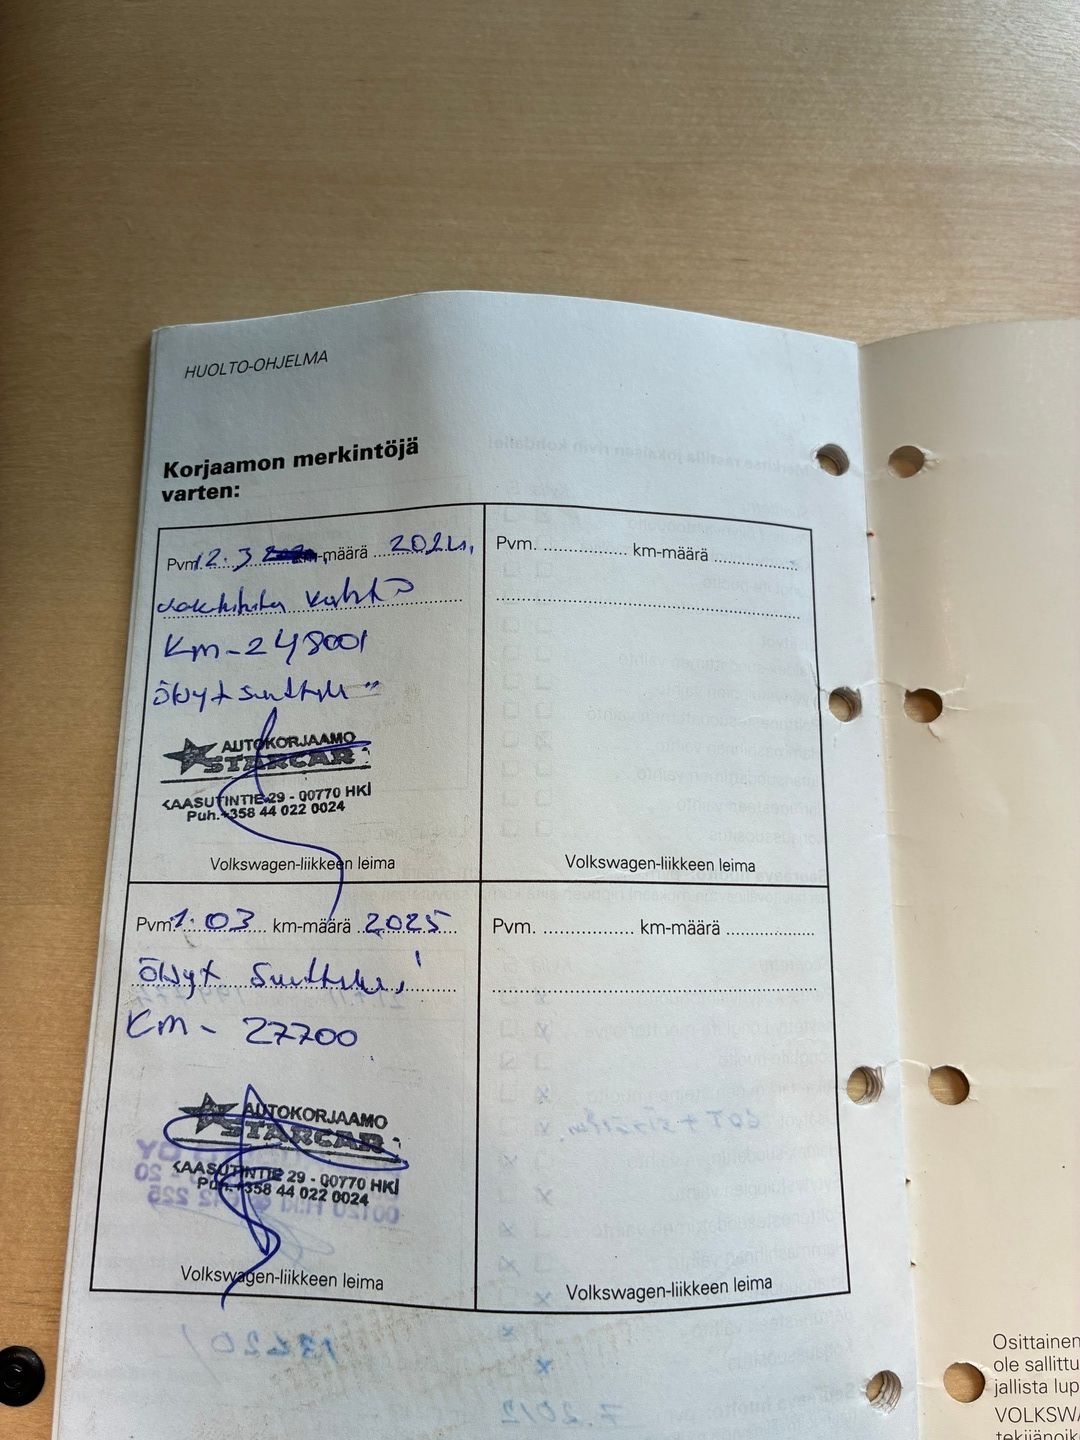 HUOLTO-OHJELMA
Korjaamon merkintöjä
varten:
Pvm. 12.3 km-määrä 2024.
Km - 248001
öljyt suttuh"
AUTOKORJAAMO
STARCAR
KAASUTINTIE 29 - 00770 HKI
Puh. +358 44 022 0024
Volkswagen-liikkeen leima
Pvm. .................. km-määrä ..................
Volkswagen-liikkeen leima
Pvm. 1.03 km-määrä 2025
öljyt
Km - 27700
AUTOKORJAAMO
STARCAR
KAASUTINTIE 29 - 00770 HKI
Puh. +358 44 022 0024
Volkswagen-liikkeen leima
Pvm. .................. km-määrä ..................
Volkswagen-liikkeen leima
Osittainen
ole sallittu
jallista lup
VOLKSWA
tekijänoik